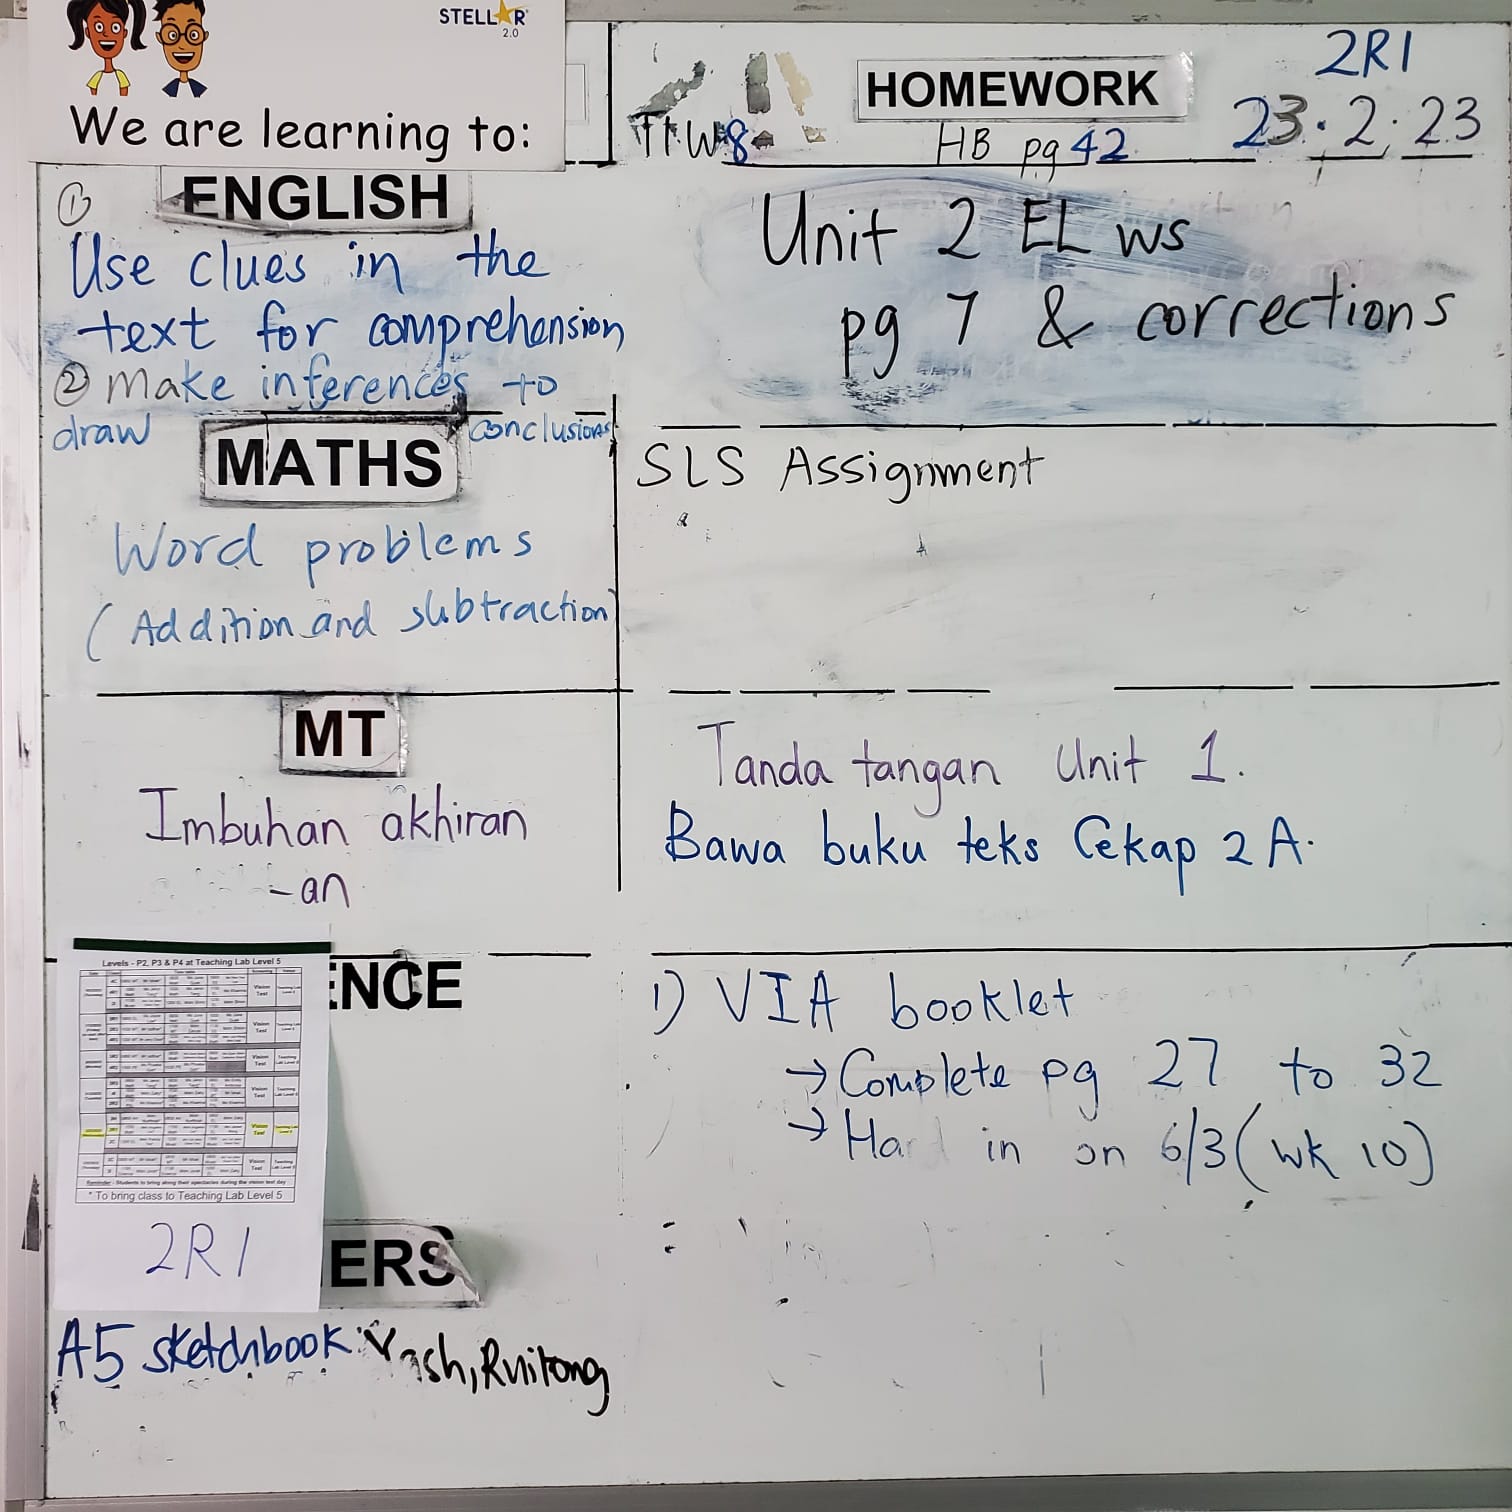 STELLAR
2.0
We are learning to:
HOMEWORK
2R1
T1W8
HB pg 42
23.2.23
① ENGLISH
Use clues in the
text for comprehension
② Make inferences to
draw conclusions
Unit 2 EL ws
pg 7 & corrections
MATHS
Word problems
(Addition and subtraction)
SLS Assignment
MT
Imbuhan akhiran
-an
Tanda tangan Unit 1.
Bawa buku teks Cekap 2A.
Levels - P2, P3 & P4 at Teaching Lab Level 5
Reminder - Students to bring along their spectacles during the vision test day
* To bring class to Teaching Lab Level 5
2R1
ENCE
1) VIA booklet
→ Complete pg 27 to 32
→ Hand in on 6/3 (wk 10)
ERS
A5 sketchbook: Yash, Ruitong